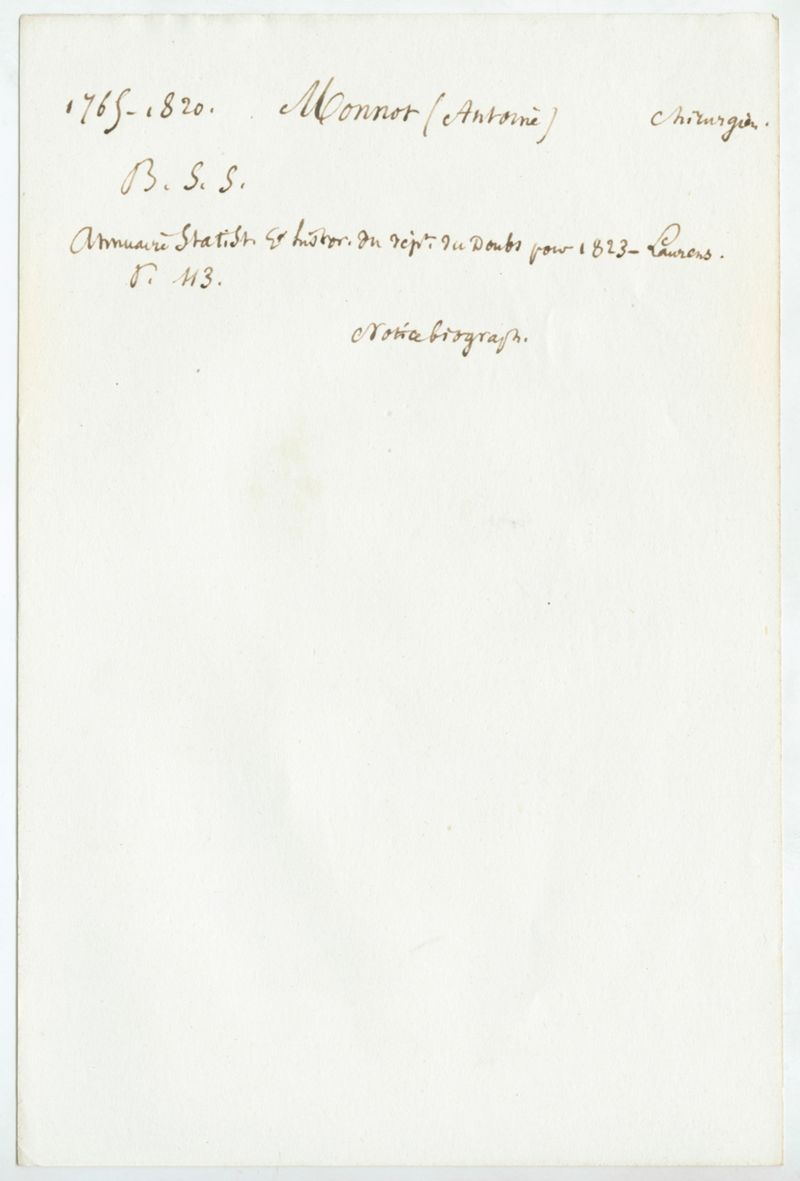 1765-1820. Monnot (Antoine) chirurgien.
B. S. S.
Annuaire Statist. & histor. du dépt. du Doubs pour 1823 - Laurens.
P. 113.
Notice biograph.